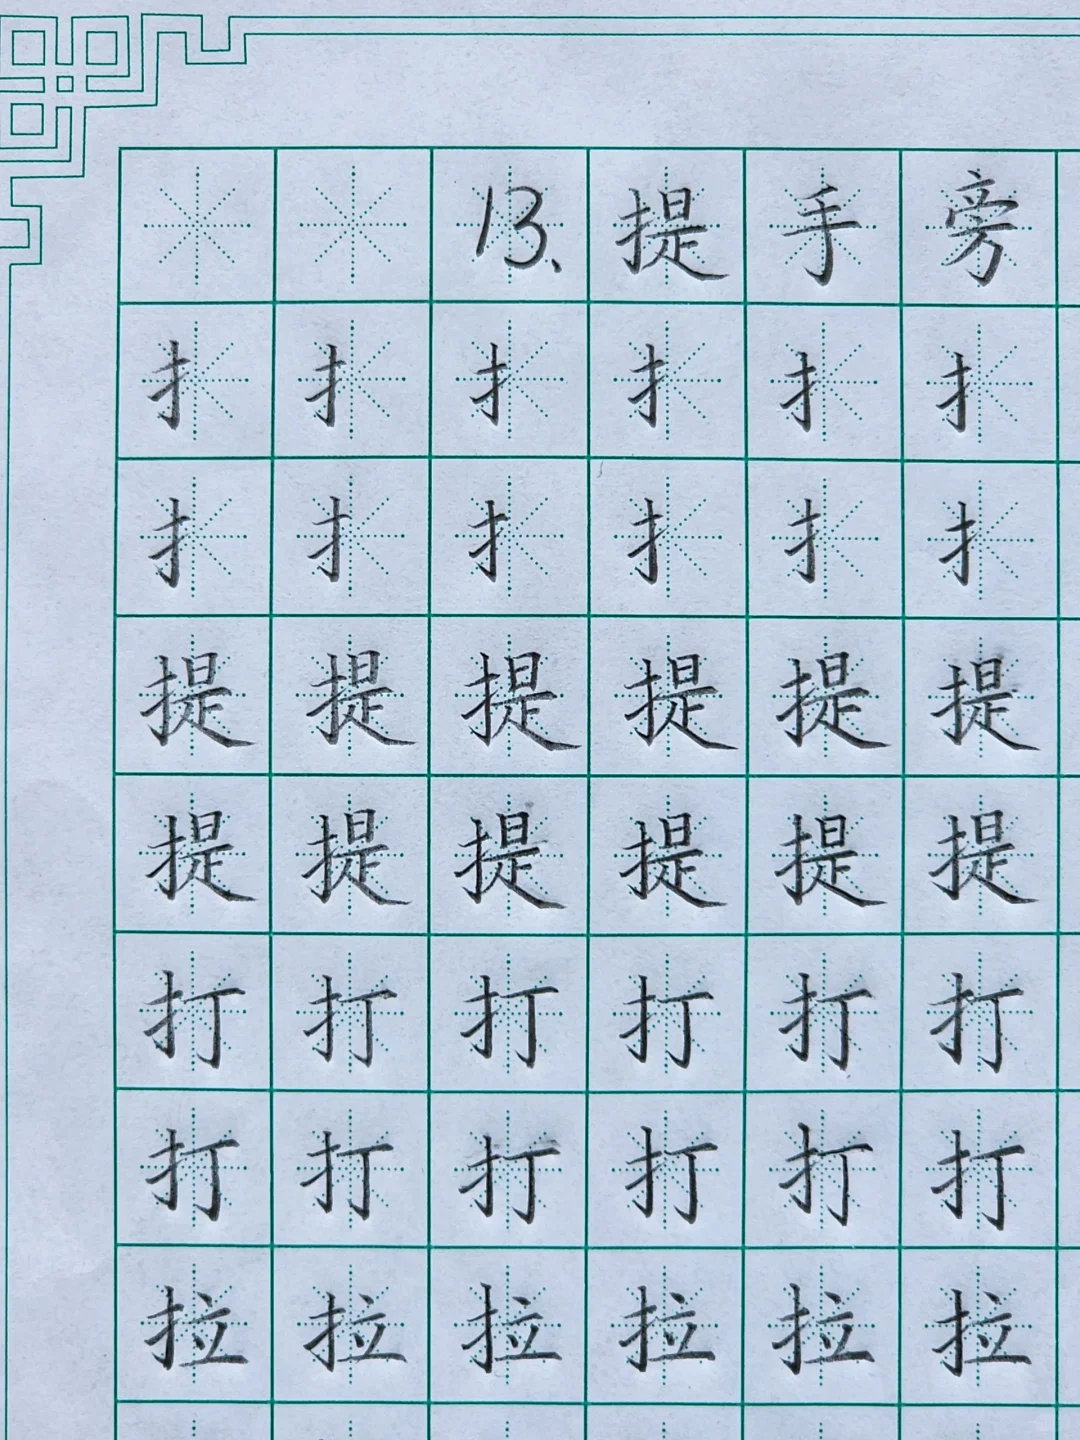 13、提手旁
扌扌扌扌扌扌
扌扌扌扌扌扌
提提提提提提
提提提提提提
打打打打打打
打打打打打打
拉拉拉拉拉拉